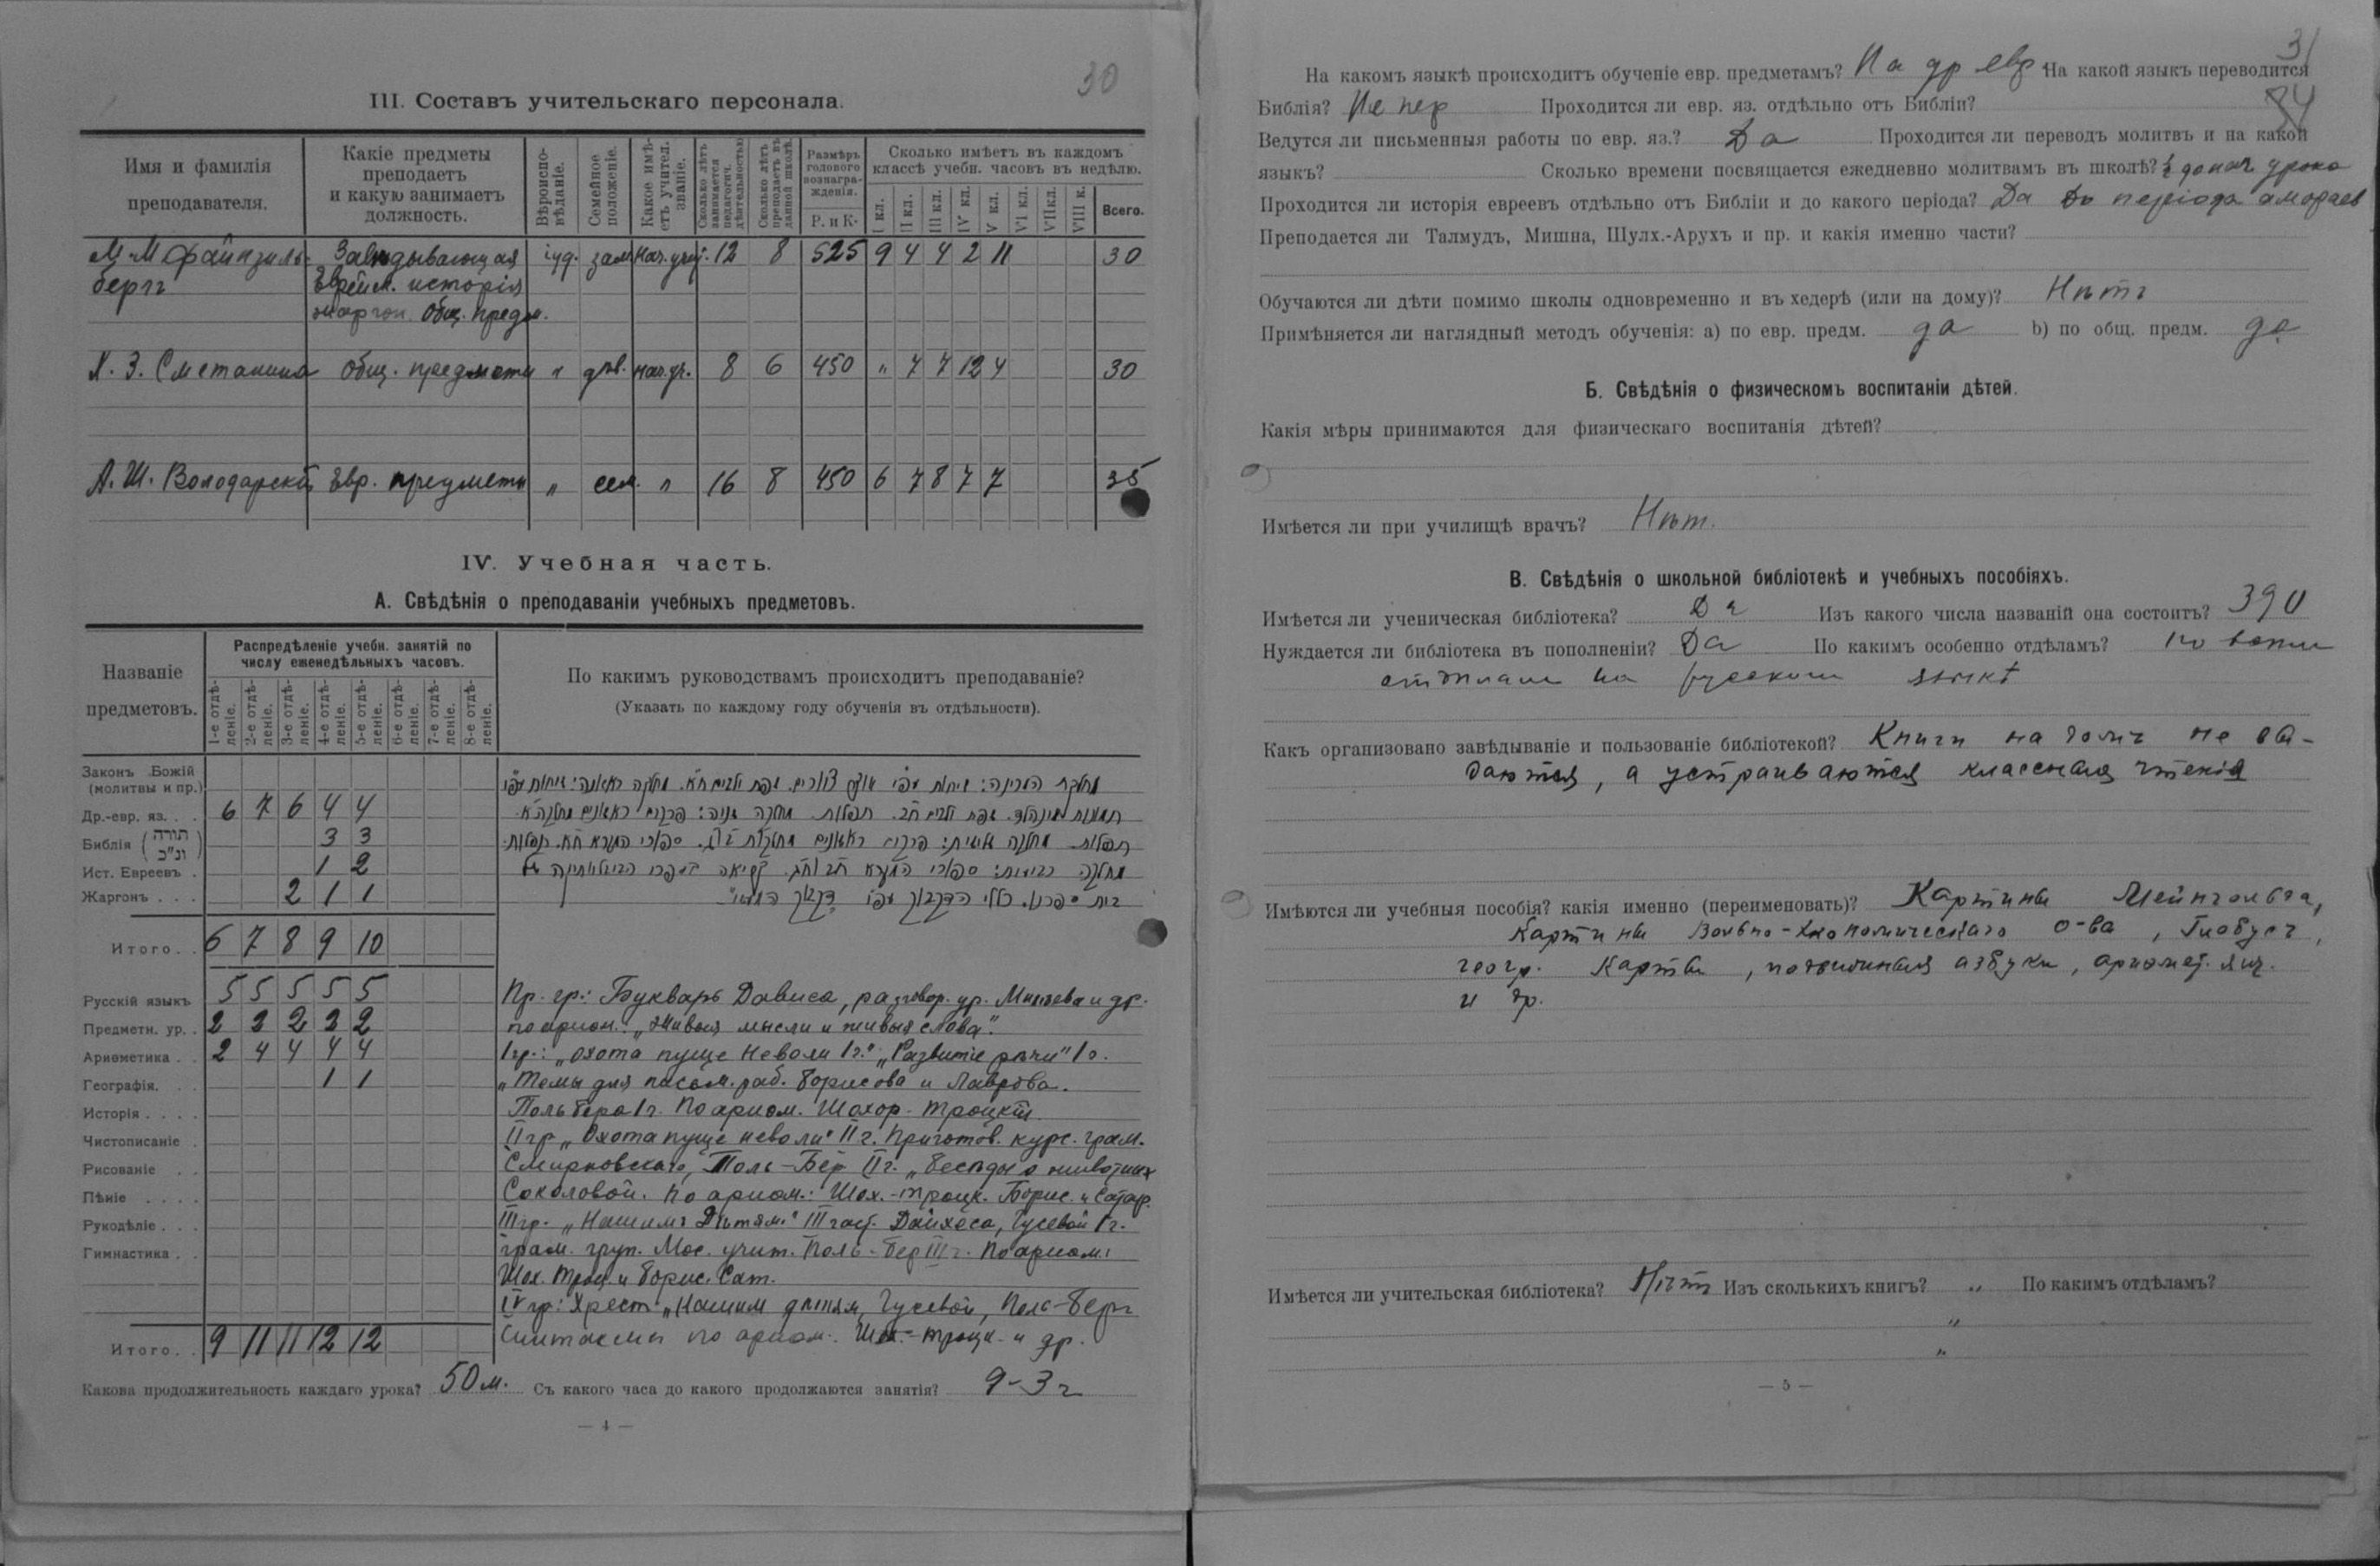 30
III. Составъ учительскаго персонала.
Имя и фамилія преподавателя.
Какіе предметы преподаетъ и какую занимаетъ должность.
Вѣроиспо-вѣданіе.
Семейное положеніе.
Какое имѣ-етъ учител. званіе.
Сколько лѣтъ занимается педагогич. дѣятельностью
Сколько лѣтъ преподаетъ въ данной школѣ.
Размѣръ годового вознагра-жденія.
Р. и К.
Сколько имѣетъ въ каждомъ классѣ учебн. часовъ въ недѣлю.
I кл. II кл. III кл. IV кл. V кл. VI кл. VII кл. VIII к. Всего.
М. М. Файнзиль- Завѣдывающая іуд. зам. нач. учит. 12 8 525 9 4 4 2 11 30
бергъ Еврейск. исторія
жаргон. Общ. предм.
Х. З. Сметанина Общ. предметы " дѣв. нач. уч. 8 6 450 " 7 7 12 4 30
А. Ш. Володарскій Евр. предметы " сем. " 16 8 450 6 7 8 7 7 35
IV. Учебная часть.
А. Свѣдѣнія о преподаваніи учебныхъ предметовъ.
Названіе предметовъ.
Распредѣленіе учебн. занятій по числу еженедѣльныхъ часовъ.
1-е отдѣ-леніе. 2-е отдѣ-леніе. 3-е отдѣ-леніе. 4-е отдѣ-леніе. 5-е отдѣ-леніе. 6-е отдѣ-леніе. 7-е отдѣ-леніе. 8-е отдѣ-леніе.
По какимъ руководствамъ происходитъ преподаваніе?
(Указать по каждому году обученія въ отдѣльности).
Законъ Божій
(молитвы и пр.)
Др.-евр. яз. . . 6 7 6 4 4
Библія (תורה ונ"כ) 3 3
Ист. Евреевъ . 1 2
Жаргонъ . . . 2 1 1
Итого . . 6 7 8 9 10
Русскій языкъ 5 5 5 5 5
Пр. гр.: Букварь Дависа, разговор. ур. и др.
Предметн. ур. . 2 2 2 2 2
по ариѳм.: „Живыя мысли и живыя слова".
Ариѳметика . . 2 4 4 4 4
I гр.: „Охота пуще неволи I г." „Развитіе рѣчи" I о.
Географія. . . 1 1
„Темы для письм. раб. Борисова и Лаврова.
Исторія . . . .
Польбера I г. По ариѳм. Шохор-Троцкій
Чистописаніе .
II гр. „Охота пуще неволи" II г. Приготов. курс. грам.
Рисованіе . .
Смирновскаго, Поль-Бер II г. „Бесѣды о животныхъ
Пѣніе . . . .
Соколовой. По ариѳм.: Шох.-Троцк. Борис. и Сатар.
Рукодѣліе . . .
III гр. „Нашимъ Дѣтямъ" III част. Дайхеса, Гусевой I г.
Гимнастика . .
грам. груп. Мос. учит. Поль-Бер III г. По ариѳм.:
Шох. Троц. и Борис. Сат.
IV гр.: Хрест. „Нашим дѣтям, Гусевой, Поль-Беръ
Итого . . 9 11 11 12 12
Синтаксисъ по ариѳм. Шох.-Троцк. и др.
Какова продолжительность каждаго урока? 50 м. Съ какого часа до какого продолжаются занятія? 9-3 ч
— 4 —
31
На какомъ языкѣ происходитъ обученіе евр. предметамъ? На др евр. На какой языкъ переводится
Библія? Не пер Проходится ли евр. яз. отдѣльно отъ Библіи?
Ведутся ли письменныя работы по евр. яз.? Да Проходится ли переводъ молитвъ и на какой
языкъ? Сколько времени посвящается ежедневно молитвамъ въ школѣ? до нач урока
Проходится ли исторія евреевъ отдѣльно отъ Библіи и до какого періода? Да До періода амораев
Преподается ли Талмудъ, Мишна, Шулх.-Арухъ и пр. и какія именно части?
Обучаются ли дѣти помимо школы одновременно и въ хедерѣ (или на дому)? Нѣтъ
Примѣняется ли наглядный методъ обученія: а) по евр. предм. да b) по общ. предм. да
Б. Свѣдѣнія о физическомъ воспитаніи дѣтей.
Какія мѣры принимаются для физическаго воспитанія дѣтей?
Имѣется ли при училищѣ врачъ? Нѣт.
В. Свѣдѣнія о школьной библіотекѣ и учебныхъ пособіяхъ.
Имѣется ли ученическая библіотека? Да Изъ какого числа названій она состоитъ? 390
Нуждается ли библіотека въ пополненіи? Да По какимъ особенно отдѣламъ? По всѣмъ
отдѣламъ на русскомъ языкѣ
Какъ организовано завѣдываніе и пользованіе библіотекой? Книги на домъ не вы-
даются, а устраиваются классныя чтенія
Имѣются ли учебныя пособія? какія именно (переименовать)? Картины Мейнгольда,
Картины Вольно-Экономическаго О-ва, Глобусъ,
геогр. Карты, подвижныя азбуки, ариѳмет. ящ.
и др.
Имѣется ли учительская библіотека? Нѣтъ Изъ сколькихъ книгъ? „ По какимъ отдѣламъ?
„
„
— 5 —